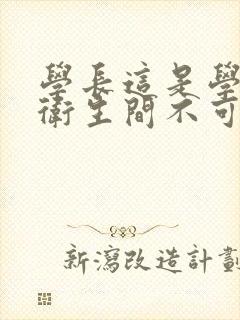 學長這是學
衛生間不可
新瀉改造計劃